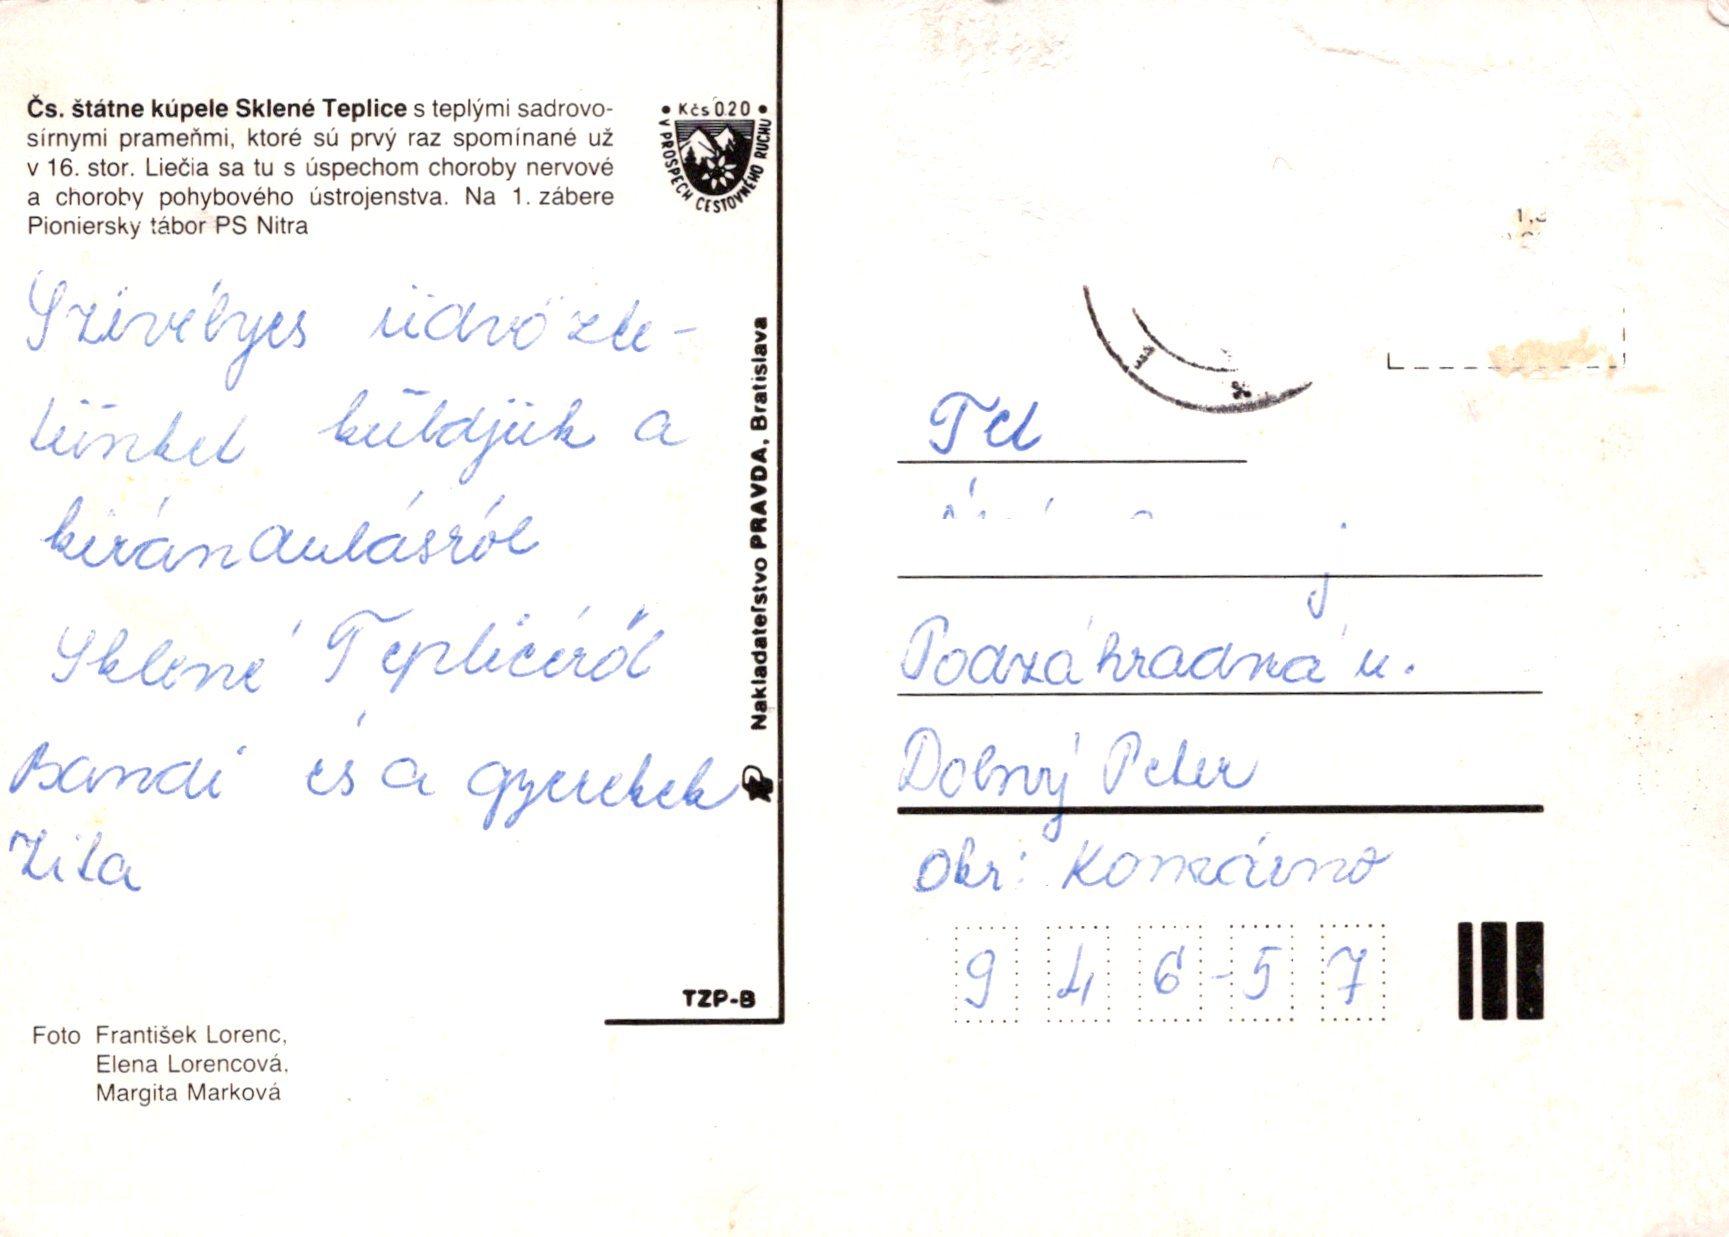 Čs. štátne kúpele Sklené Teplice s teplými sadrovo-
sírnymi prameňmi, ktoré sú prvý raz spomínané už
v 16. stor. Liečia sa tu s úspechom choroby nervové
a choroby pohybového ústrojenstva. Na 1. zábere
Pioniersky tábor PS Nitra
• Kčs 0.20 •
V PROSPECH CESTOVNÉHO RUCHU
Szívélyes üdvözle-
tünket küldjük a
kirándulásról
Sklené Teplicéről
Bandi és a gyerekek
Zita
Nakladateľstvo PRAVDA, Bratislava
TZP-B
Foto František Lorenc,
Elena Lorencová,
Margita Marková
Podzáhradná u.
Dolný Peter
Okr: Komárno
946-57